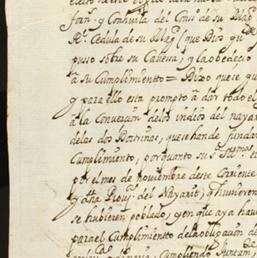 fran. y Consulta del Consº de su Mag
Rl. Cedula de su Mag. (que Dios gu
puso sobre su Caveza, y la obedeció
a su Cumplimientto = Dixo que se gu
y para ello esta prompto a dar todo el
a la Conversion delos indios del nayar
delas dos Doctrinas, que se han de fundar
Cumplimiento, por quanto su
por el mes de Noviembre deste Corriente
y dha Provª. del Nayarit, a
se hubieren poblado, y en que aya hav
para el Cumplimientto dela obligacion de
Cumpliendo